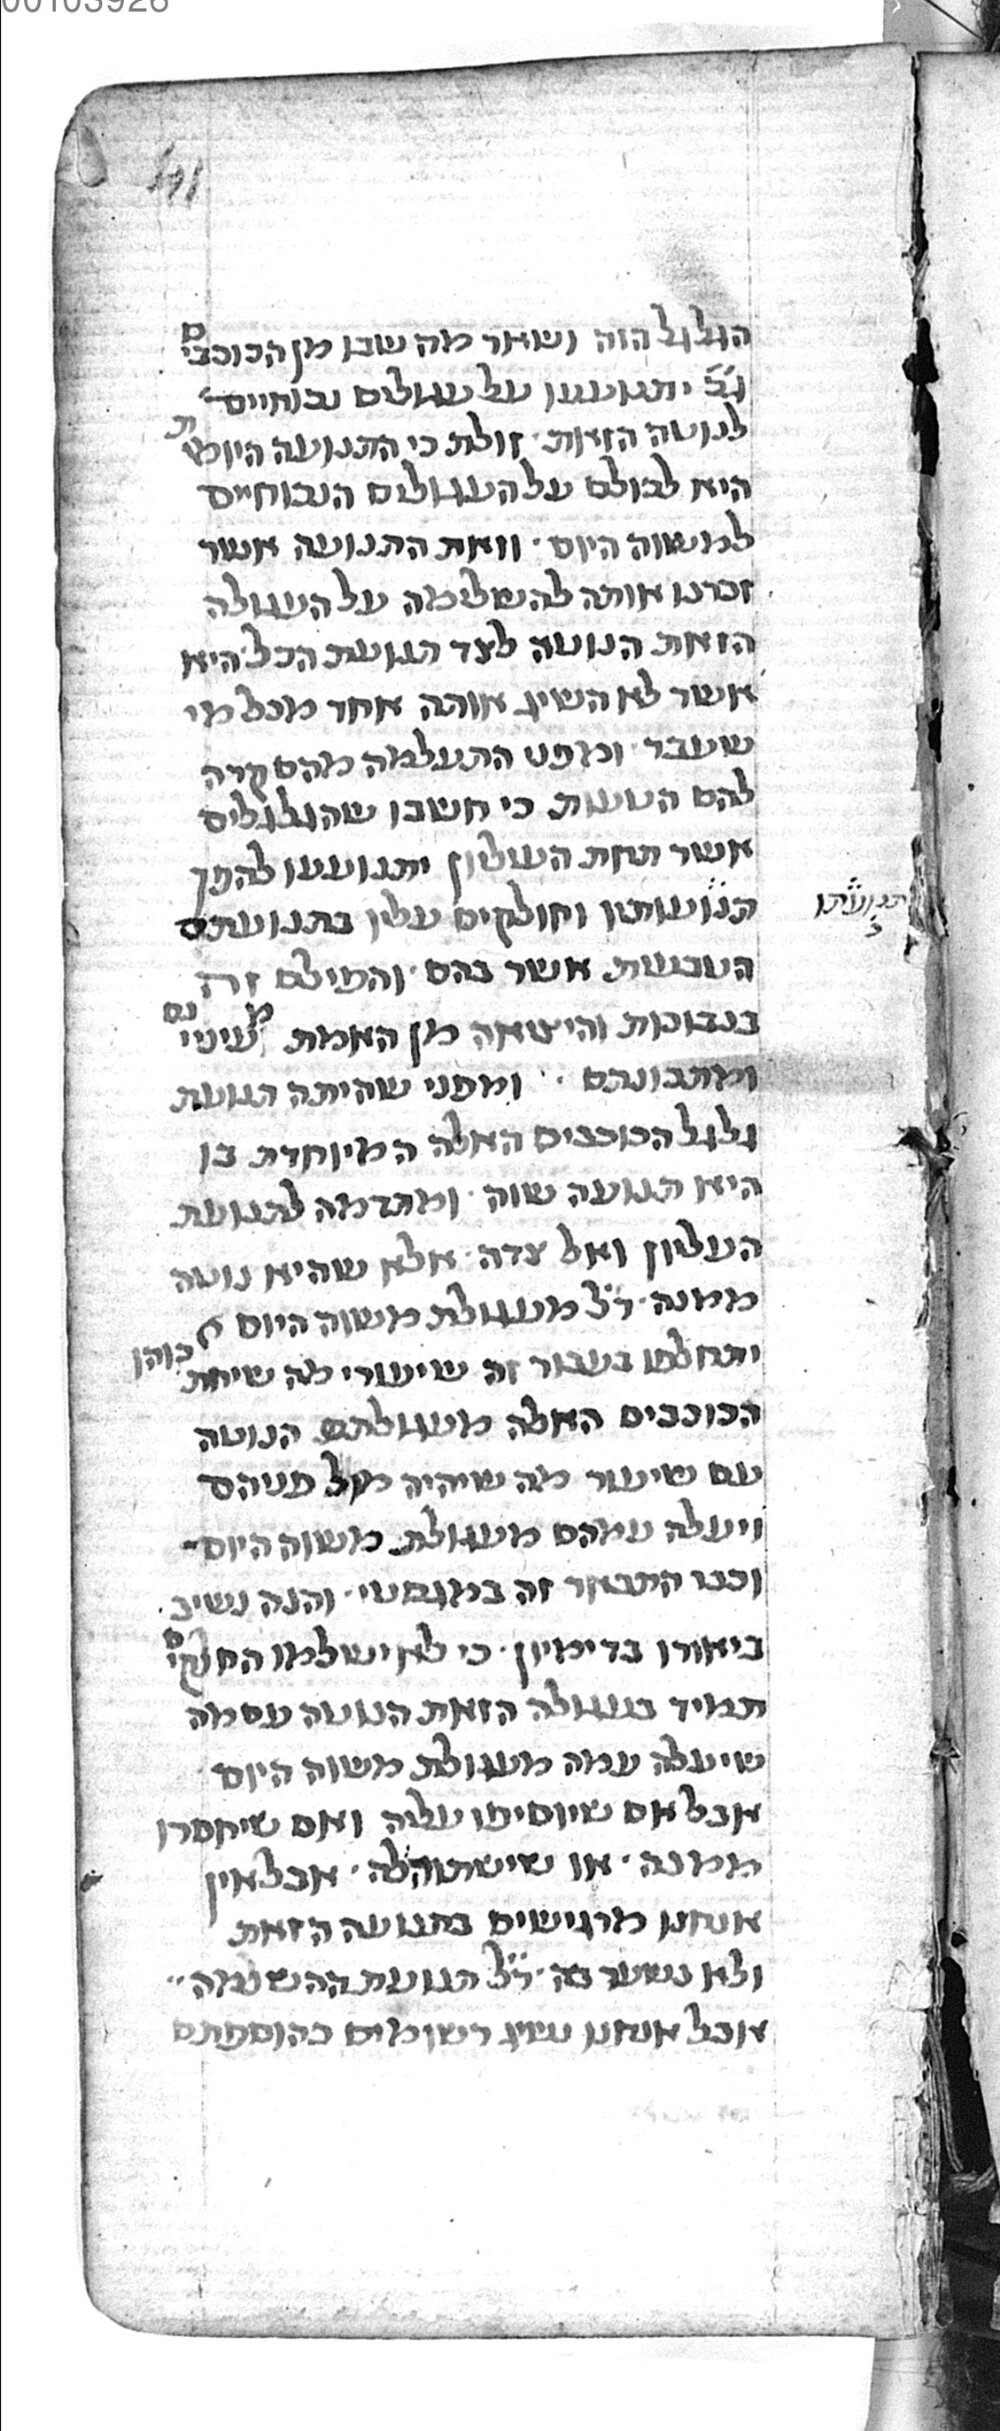 00103926
הגלגל הזה ושאר מה שבו מן הכוכבים
גכ יתנועעו על עגולים נכוחיים
לנוטה הזאת זולת כי התנועה היומית
היא לכולם על העגולים הנכוחיים
למשוה היום וזאת התנועה אשר
זכרנו אותה להשלימה על העגולה
הזאת הנוטה לצד תנועת הכל היא
אשר לא השיג אותה אחד מכל מי
שעבר ומפני התעלמה מהם קרה
להם הטעות כי חשבו שהגלגלים
אשר תחת העליון יתנועעו להפך
תנועתו וחולקים עליו בתנועתם
הטבעית אשר בהם והפילם זה
בנבוכות והיציאה מן האמת מעינינם
ומתבונתם ומפני שהיתה תנועת
גלגל הכוכבים האלה המיוחדת בו
היא תנועה שוה ומתדמה לתנועת
העליון ואל צדה אלא שהיא נוטה
ממנה רל מעגולת משוה היום לא
יתחלפו בעבור זה שיעורי מה שיחתכוהו
הכוכבים האלה מעגולתם הנוטה
עם שיעור מה שיהיה מקל פניהם
ויעלה עמהם מעגולת משוה היום
וכבר התבאר זה במגסטי והנה נשיב
ביאורו בדימיון כי לא ישלמו החלקים
תמיד בעגולה הזאת הנוטה עם מה
שיעלה עמה מעגולת משוה היום
אבל אם שיוסיפו עליה ואם שיחסרו
ממנה או שישתוה לה אבל אין
אנחנו מרגישים בתנועה הזאת
ולא נשער בה רל תנועת ההשלמה
אבל אנחנו נשיג רשומים בהוספתם
תנועתו